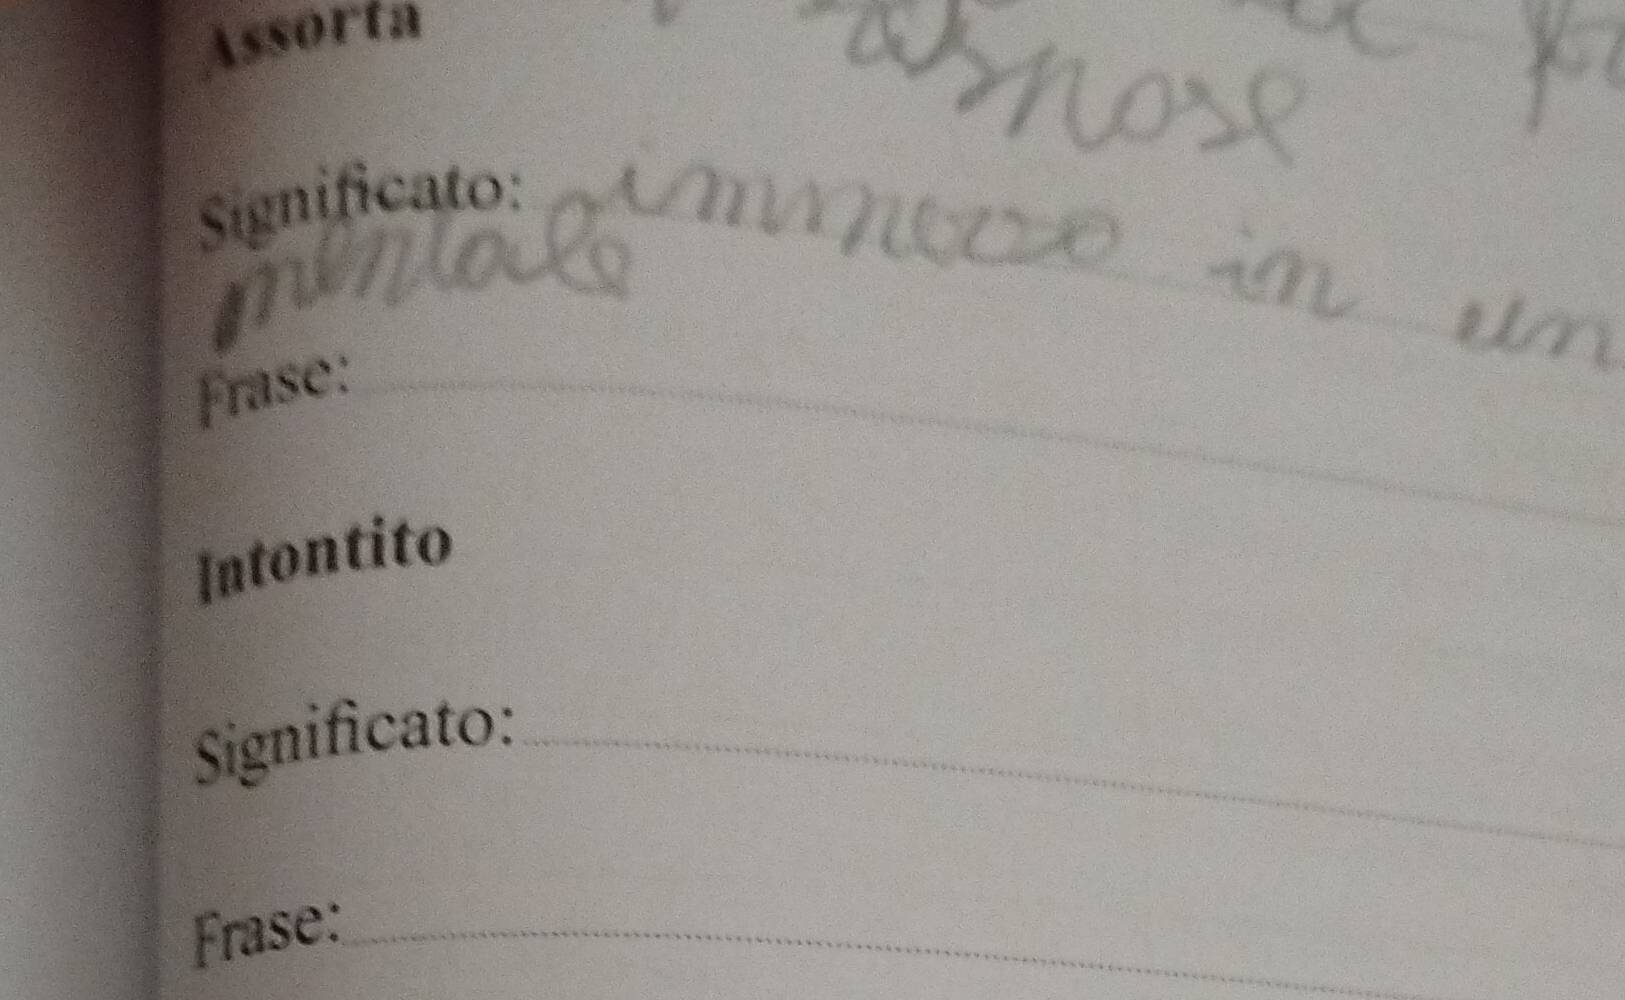 Assorta
Significato: immerso in un
mentale
Frase:
Intontito
Significato:
Frase: